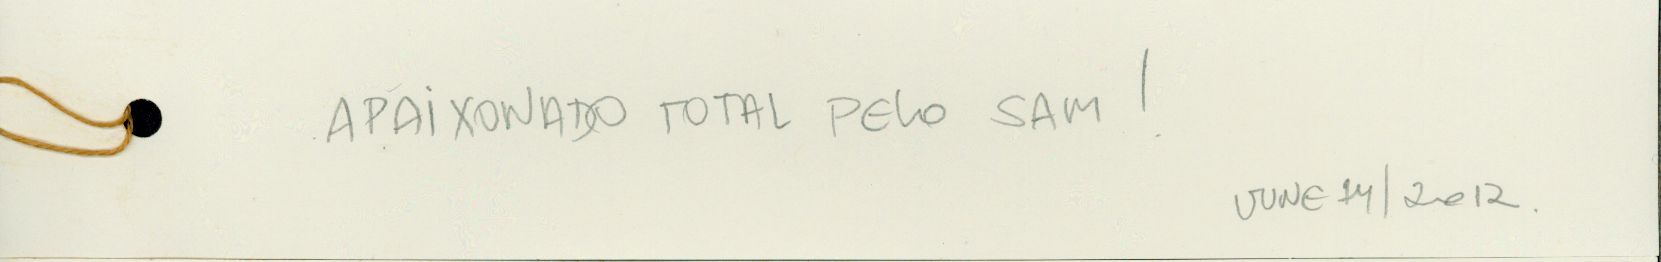 APAIXONADO TOTAL PELO SAM!
JUNE 14/2012.